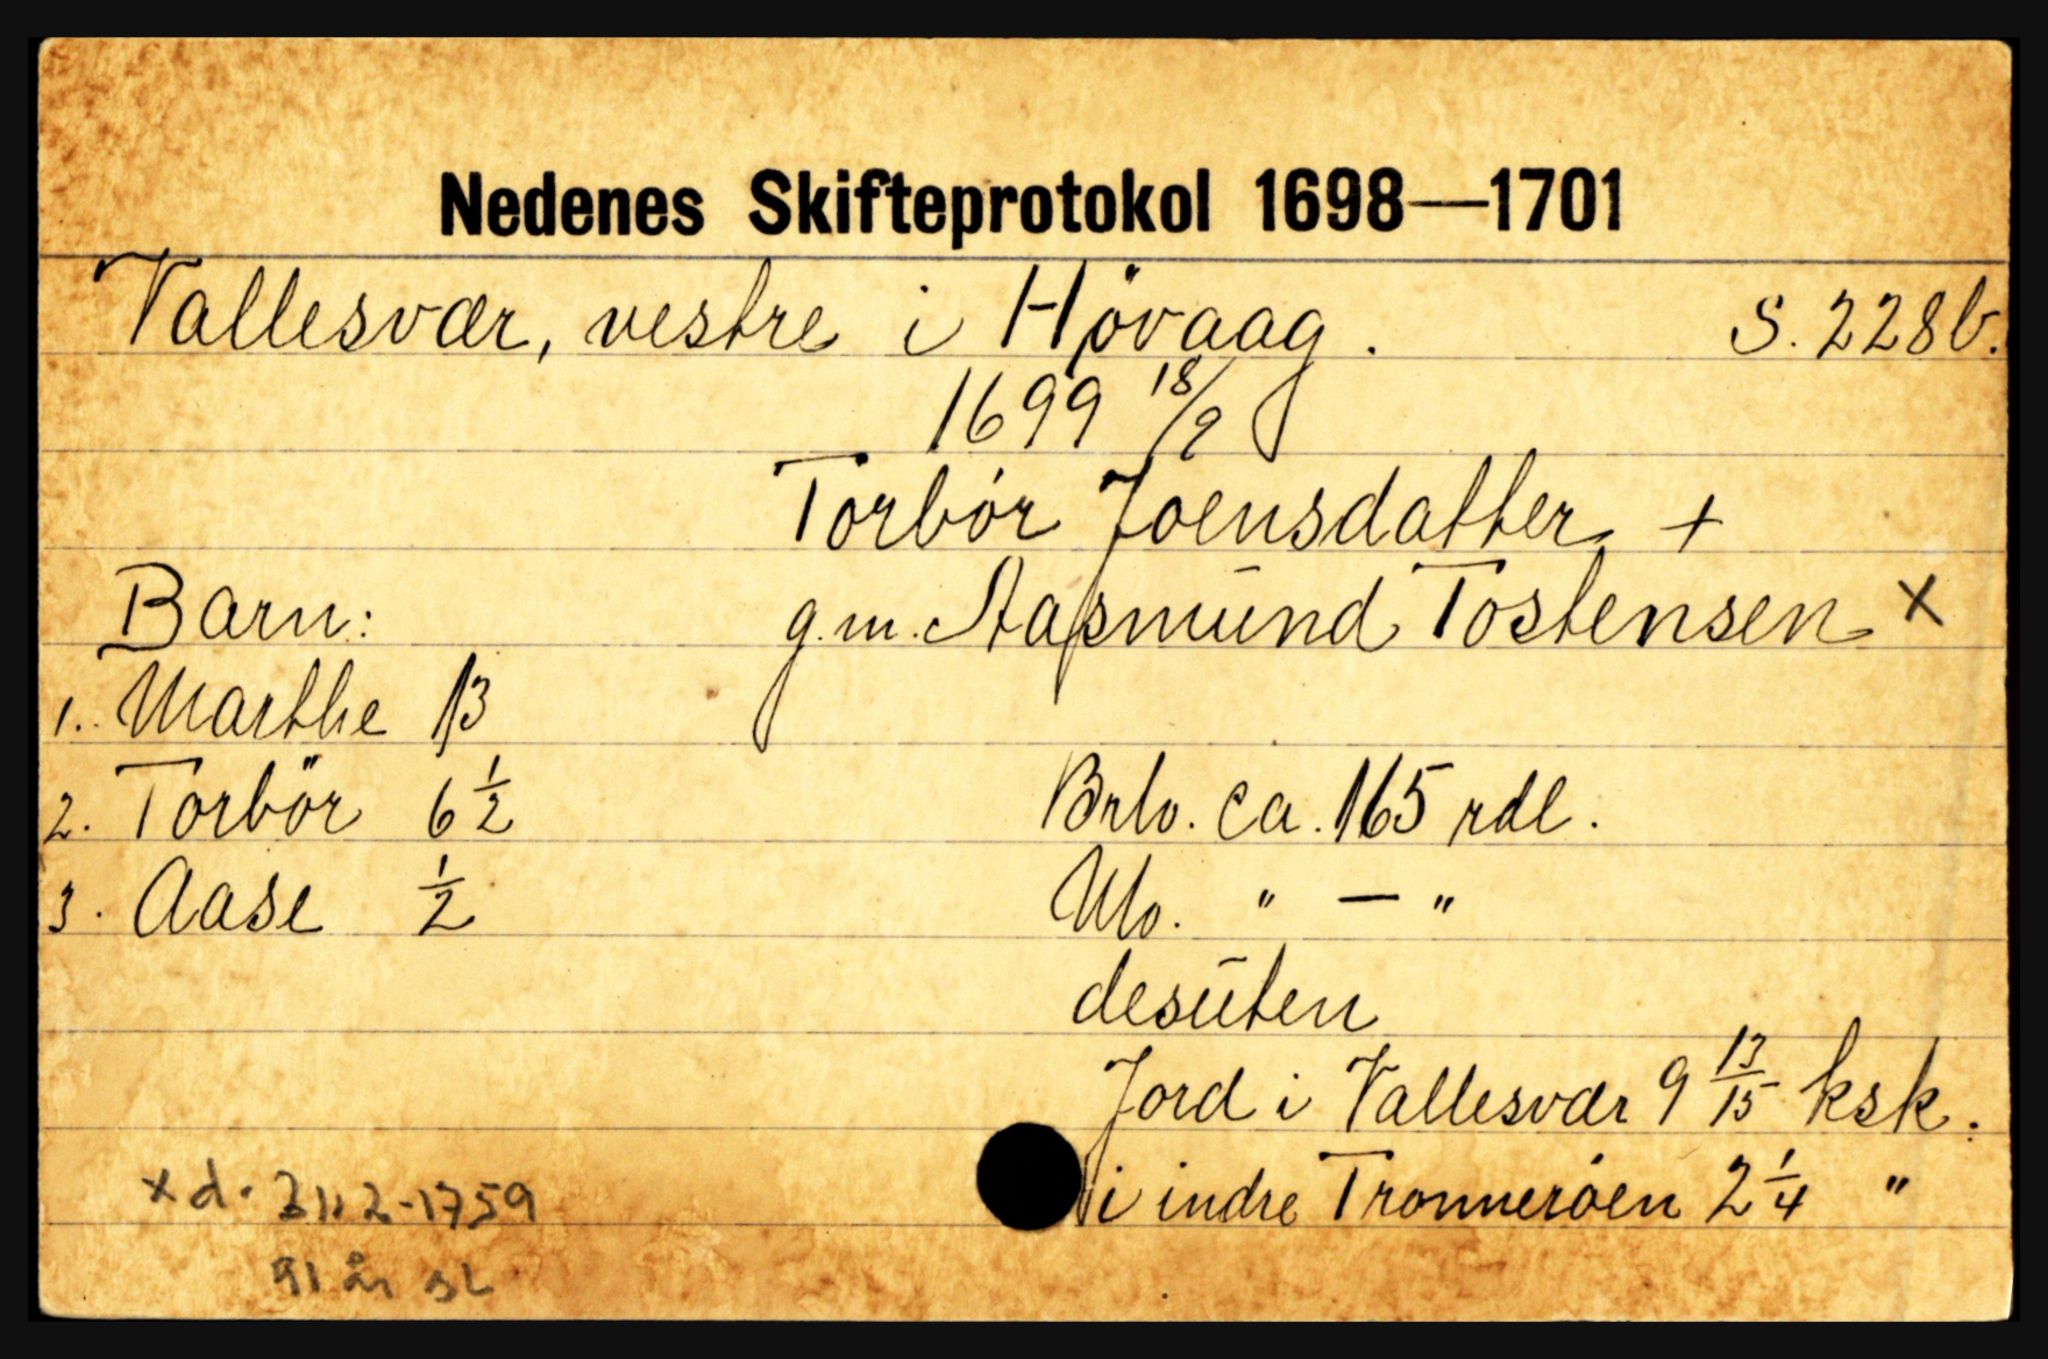 Nedenes Skifteprotokol 1698—1701
Vallesvær, vestre i Høvaag. S. 228b.
1699 18/9
Torbór Joensdatter +
Barn: g.m. Aasmund Tostensen x
1. Marthe 13
2. Torbör 6 1/2 Brlo. ca. 165 rdl.
3. Aase 1/2 Nlo. " — "
desuten
Jord i Vallesvær 9 13/15 ksk.
i indre Tronnerøen 2 1/4 "
x d. 2-1759
91 år